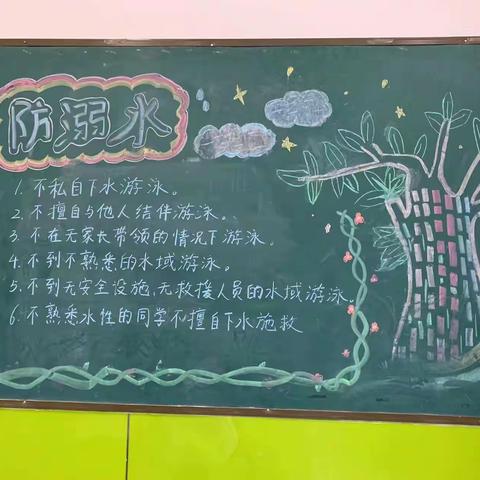 防溺水
1. 不私自下水游泳。
2. 不擅自与他人结伴游泳。
3. 不在无家长带领的情况下游泳。
4. 不到不熟悉的水域游泳。
5. 不到无安全设施,无救援人员的水域游泳。
6. 不熟悉水性的同学不擅自下水施救